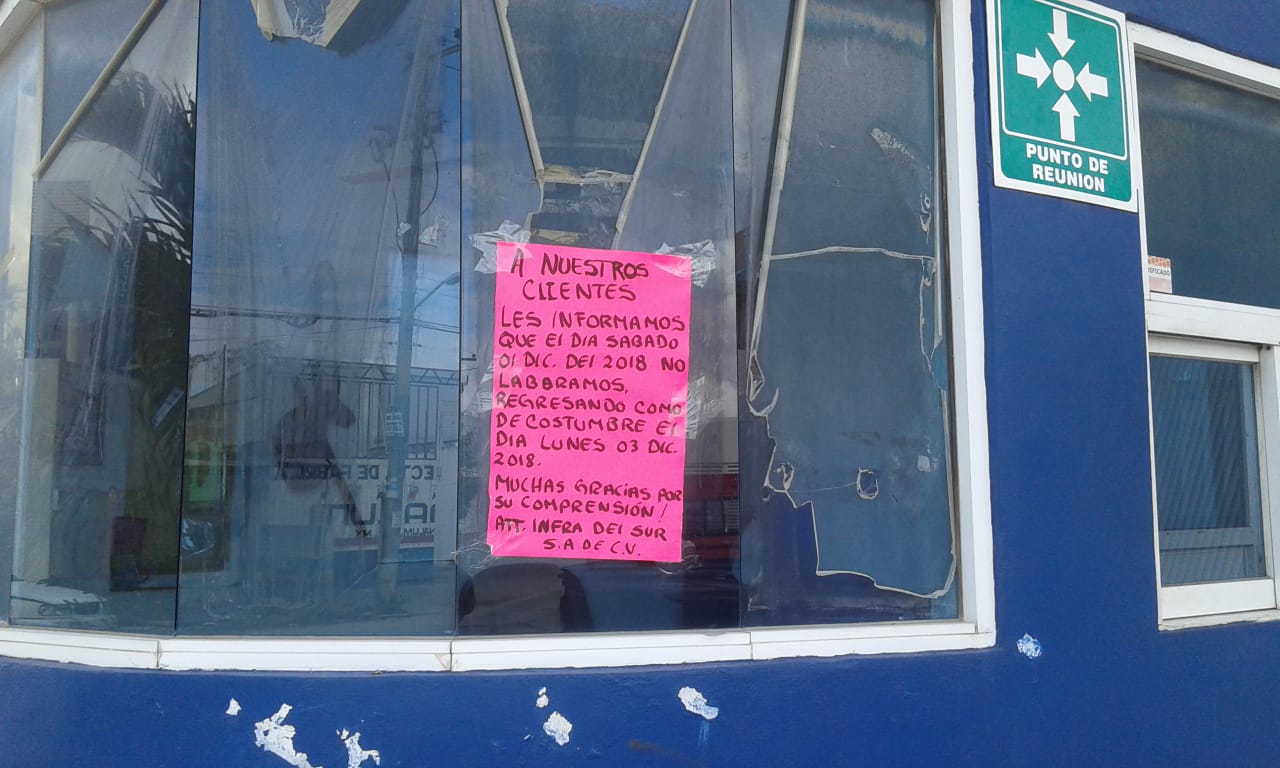 PUNTO DE
REUNION
A NUESTROS
CLIENTES
LES INFORMAMOS
QUE El DIA SABADO
01 DIC. DEl 2018 NO
LABORAMOS,
REGRESANDO COMO
DE COSTUMBRE El
DIA LUNES 03 DIC.
2018.
MUCHAS GRACIAS POR
SU COMPRENSIÓN!
ATT. INFRA DEl SUR
S.A DE C.V.